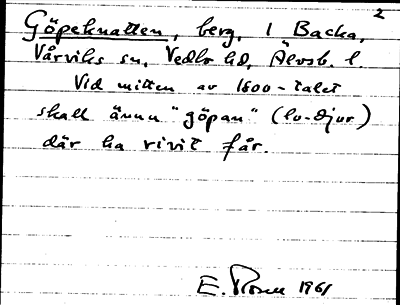 2
Göpeknatten, berg, 1 Backa,
Vårviks sn, Vedbo hd, Älvsb. l.
Vid mitten av 1600-talet
skall ännu "göpan" (lo-djur)
där ha rivit får.
E. Rosell 1961